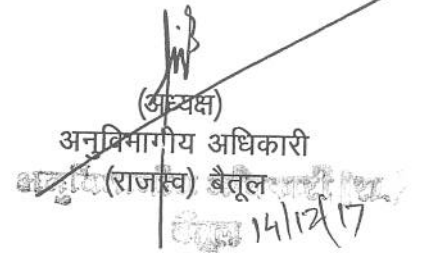 (अध्यक्ष)
अनुविभागीय अधिकारी
(राजस्व) बैतूल
बैतूल 14/12/17